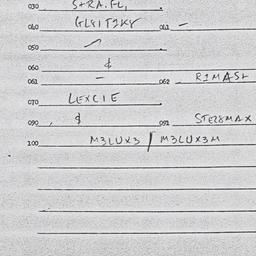 030 STRA.FL,
040 GLSITIKY 041 —
050
060 &
061 — 062 RIMASL
070 LEXCIE
090 , & 091 STEZ8MAX
100 M3LUX3 / M3LUX3M